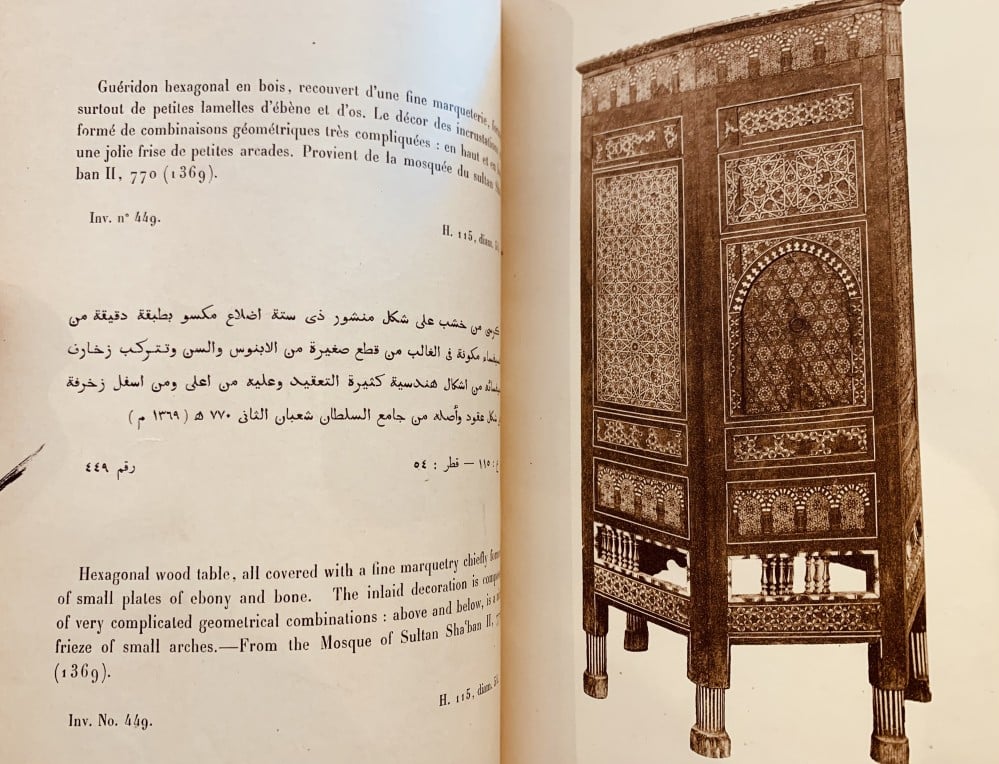 Guéridon hexagonal en bois, recouvert d'une fine marqueterie,
surtout de petites lamelles d'ébène et d'os. Le décor des
formé de combinaisons géométriques très compliquées : en haut et en
une jolie frise de petites arcades. Provient de la mosquée du sultan
ban II, 770 (1369).
Inv. n° 449.
H. 115, diam.
من خشب على شكل منشور ذى ستة اضلاع مكسو بطبقة دقيقة من
مكونة فى الغالب من قطع صغيرة من الابنوس والسن وتتركب زخارف
من اشكال هندسية كثيرة التعقيد وعليه من اعلى ومن اسفل زخرفة
شكل عقود وأصله من جامع السلطان شعبان الثانى ٧٧٠ ھ (١٣٦٩ م)
١١٥ — قطر : ٥٤ رقم ٤٤٩
Hexagonal wood table, all covered with a fine marquetry chiefly
of small plates of ebony and bone. The inlaid decoration is
of very complicated geometrical combinations : above and below, is a
frieze of small arches.—From the Mosque of Sultan Sha'ban II,
(1369).
H. 115, diam.
Inv. No. 449.